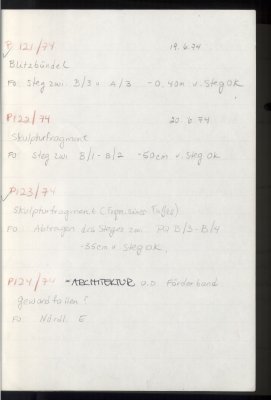 P 121/74 19.6.74
Blitzbündel
FO Steg zwi. B/3 u A/3 -0,40m u. Steg OK
P122/74 20.6.74
Skulpturfragment
FO Steg zwi B/1-B/2 -50cm u. Steg OK
P123/74
Skulpturfragment (Fragm. eines Fußes)
FO Abtragen des Steges zwi. PQ B/3-B/4
-35cm u Steg OK.
P124/74 -ARCHITEKTUR v.o. Förderband
Gewandfalten!
FO Nördl. E